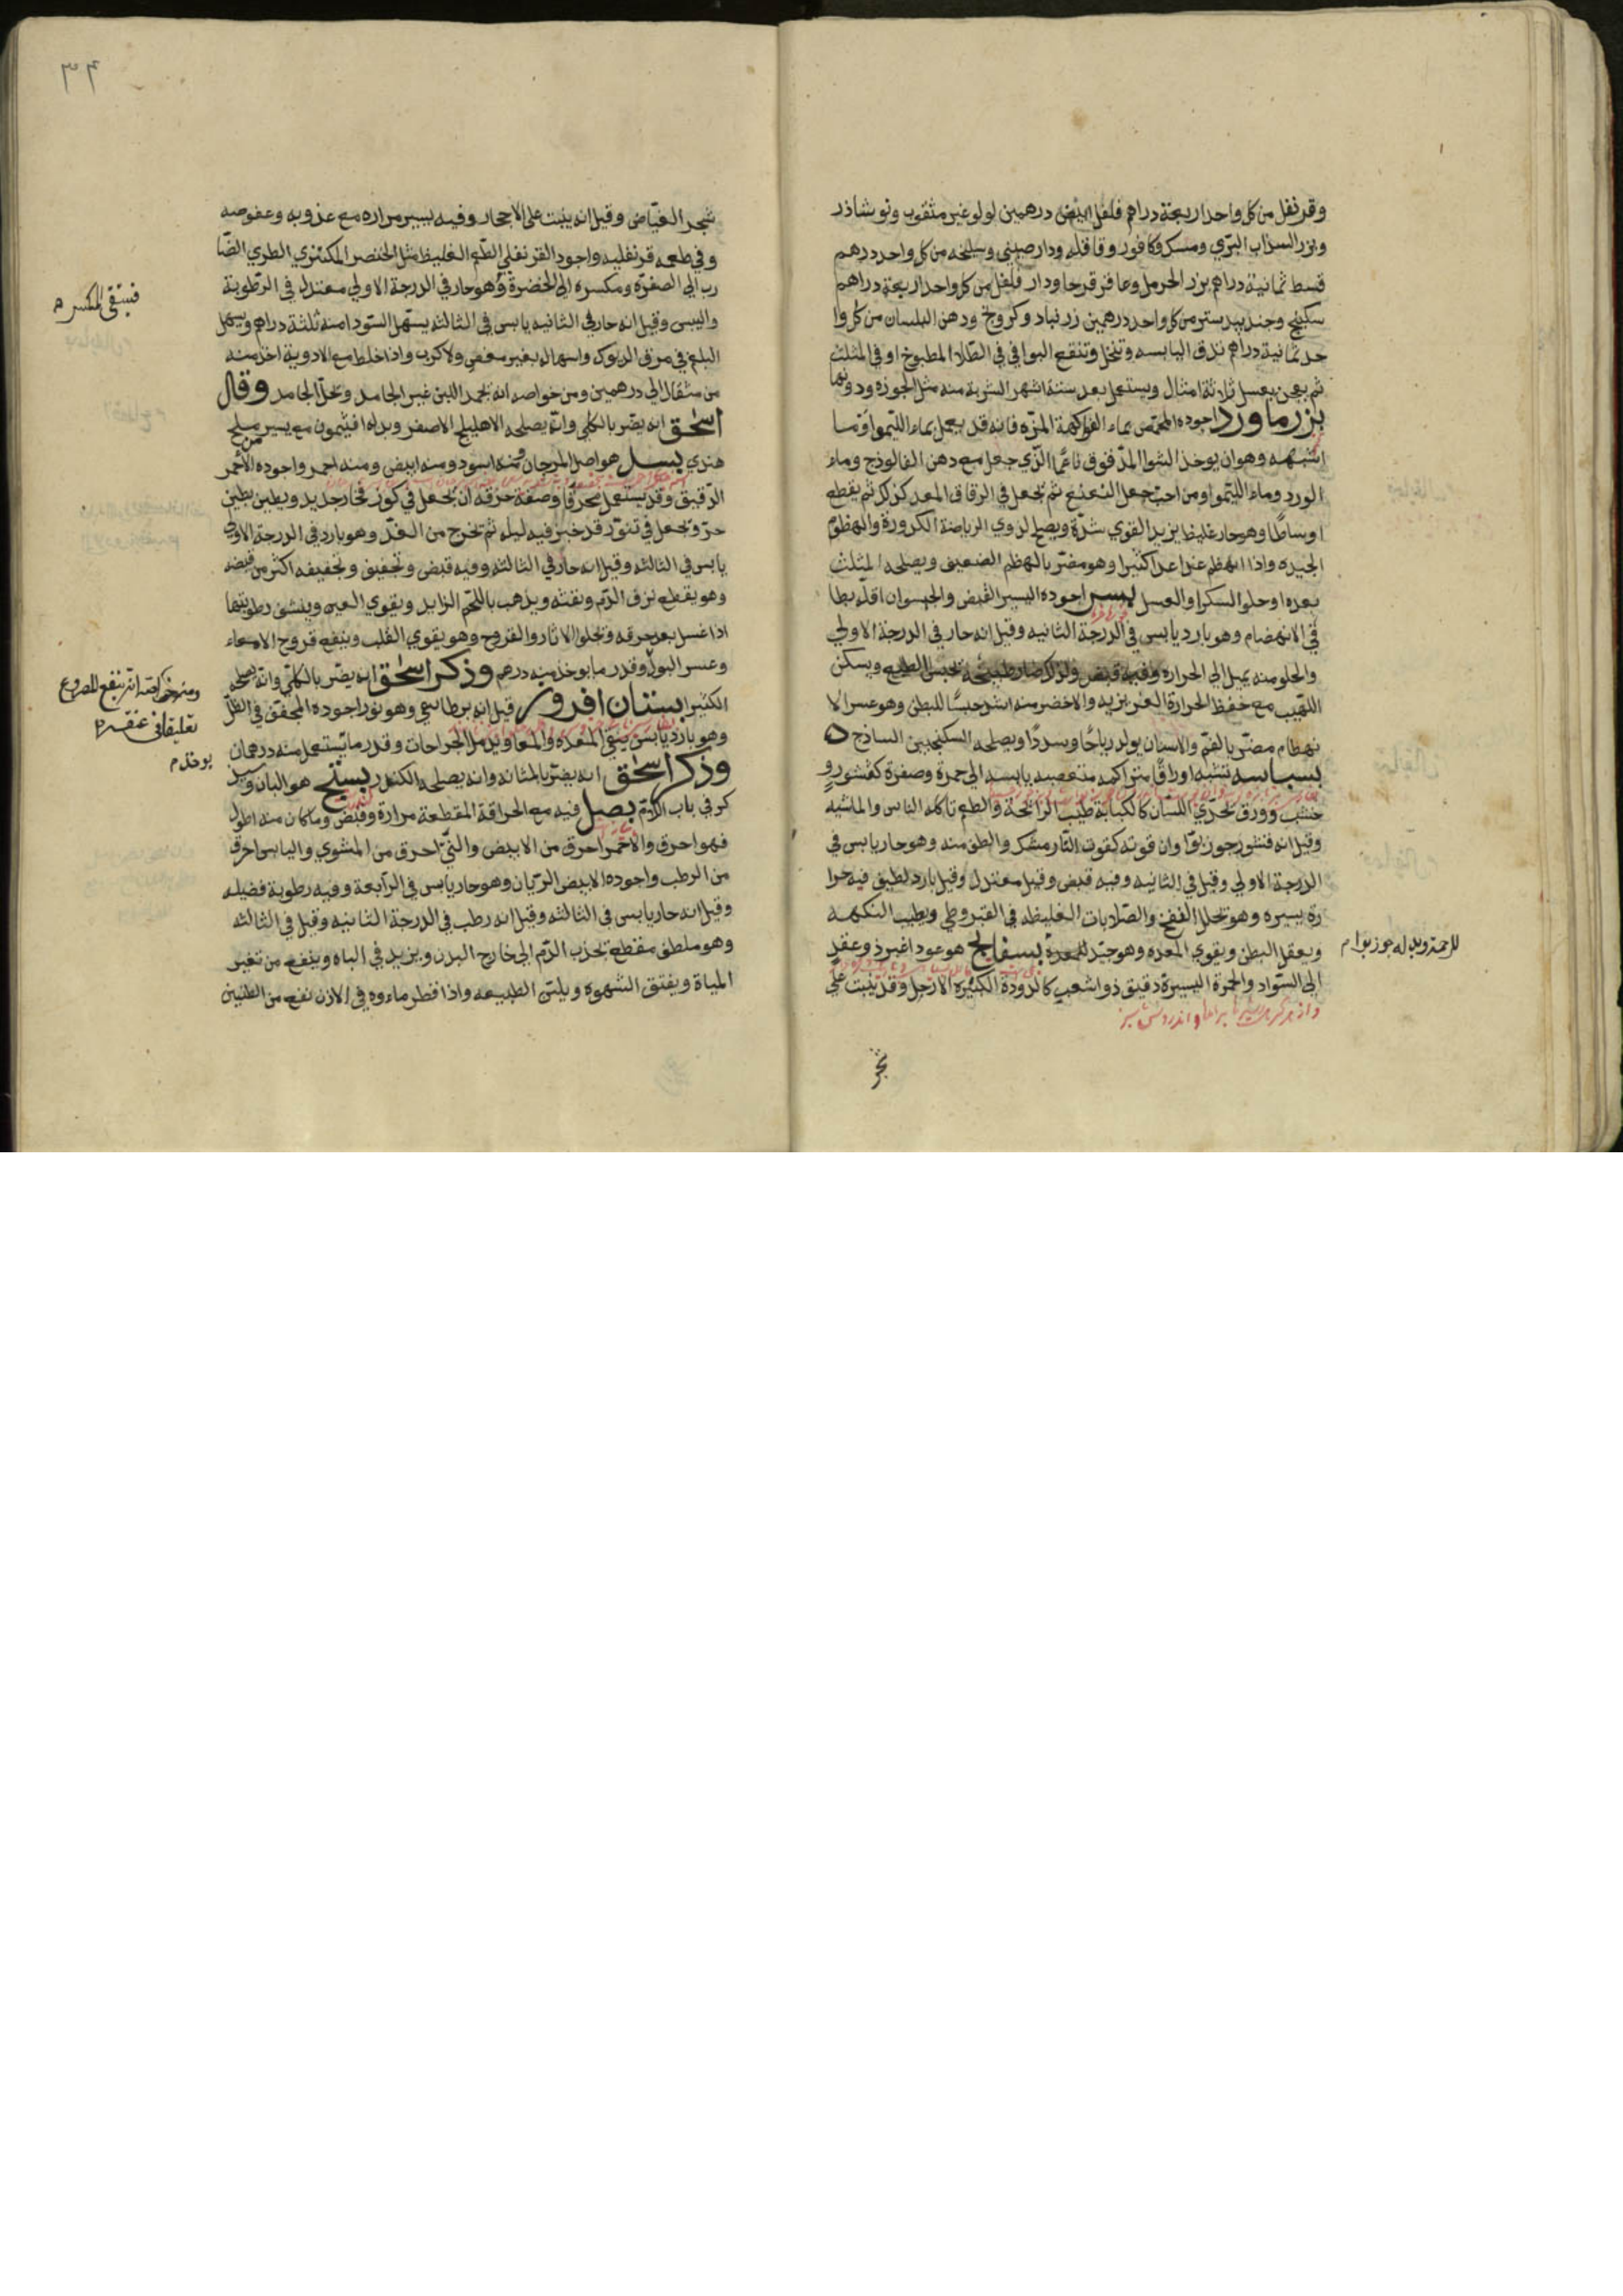 وقرنفل من كل واحد اربعة دراهم فلفل ابيض درهمين لولو غير مثقوب ونوشاذر
وبزر السذاب البري ومسك وكافور وقاقله ودارصيني وسليخه من كل واحد درهم
قسط ثمانية دراهم بزر الحرمل وعاقر قرحا ودار فلفل من كل واحد اربعة دراهم
سكبينج وجندبيدستر من كل واحد درهمين زرنباد وكرونج ودهن البلسان من كل وا
حد ثمانية دراهم تدق اليابسه وتنخل وتنقع البواقي في الطلا المطبوخ او في المثلث
ثم يعجن بعسل ثلاثة امثال ويستعمل بعد ستة اشهر الشربة منه مثل الجوزه ودونها
بزرماورد اجوده المحمص بماء الفواكهة المزه فانه قد يعمل بماء الليموا وما
اشبهه وهو ان يوخذ الشوا المدقوق ناعما الذي جعل معه دهن الفالوذج وماء
الورد وماء الليموا ومن احب جعل النعنع ثم يجعل في الرقاق المعد كذلك ثم يقطع
اوساطا وهو حار غليظ يزيد القوي شدة ويصلح لذوي الرياضة الكدورة والهظوم
الجيده واذا انهظم غذا غذا كثيرا وهو مضر بالهظم الضعيف ويصلحه المثلث
بعده او حلوا السكر او العسل بسر اجوده اليسير القبض والجيسوان اقله بطا
في الانهضام وهو بارد يابس في الدرجة الثانيه وقيل انه حار في الدرجة الاولي
والحلو منه يميل الي الحراره وفيه قبض ولذلك صار طبيخه يحبس الطبع ويسكن
اللهيب مع حفظ الحرارة الغريزيه والاخضر منه اشد حبسا للبطن وهو عسر الا
نهظام مضر بالفم والاسنان يولد رياحا وسددا ويصلحه السكنجبين الساذج
بسباسه تشبه اوراقا متراكمه متغصبه يابسه الي حمرة وصفرة كقشور و
خشب وورق تحذي اللسان كالكبابة طيب الرائحة والطعم تاكله الناس والماشيه
وقيل انه قشور جوز بوا وان قوته كقوت النارمشك والطف منه وهو حار يابس في
الدرجة الاولي وقيل في الثانيه وفيه قبض وقيل معتدل وقيل بارد لطيف فيه حرا
رة يسيره وهو تحلل النفخ والصلابات الغليظه في القيروطي ويطيب النكهه
ويعقل البطن ويقوي المعده وهو جيد للمعدة بسفايج هو عود اغبر ذو عقد
الي السواد والحمرة اليسيرة دقيق ذو اشعب كالدودة الكثيره الارجل وقد ينبت علي
شجر
للرحم وبدله جوز بوا م
٣٦
شجر الغياض وقيل انه ينبت علي الاحجار وفيه يسير مراره مع عذوبه وعفوصه
وفي طعمه قرنفليه واجود القرنفلي الطعم الغليظ مثل الخنصر المكتنزي الطري الضا
رب الي الصفره ومكسره الي الخضرة وهو حار في الدرجة الاولي معتدل في الرطوبة
واليبس وقيل انه حار في الثانيه يابس في الثالثه يستهل السودا منه ثلثة دراهم ويسهل
البلغم في مرق الديوك واسهاله بغير مغص ولا كرب واذا خلط مع الادوية اخذ منه
من مثقال الي درهمين ومن خواصه انه يجمد اللبن غير الجامد وتحل الجامد وقال
اسحق انه يضر بالكلي وانه يصلحه الاهليلج الاصفر وبدله افيثمون مع يسير من ملح
هندي بسل هو اصل المرجان ومنه اسود ومنه ابيض ومنه احمر واجوده الاحمر
الدقيق وقد يستعمل محرقا وصفة حرقه ان يجعل في كوز فخار جديد ويطين بطين
حر وتجعل في تنور قد خبز فيه ليله ثم تخرج من الغد وهو بارد في الدرجة الاولي
يابس في الثالثه وقيل انه حار في الثالثه وفيه قبض وتجفيف وتجفيفه اكثر من قبضه
وهو يقطع نزف الدم ونفثه ويذهب باللحم الزايد ويقوي العين وينشف رطوبتها
اذا غسل بعد حرقه وتجلوا الاثار والقروح وهو يقوي القلب وينفع قروح الامعاء
وعسر البول وقدر ما يوخذ منه درهم وذكر اسحق انه يضر بالكلي وانه يصلحه
الكثيرا بستان افروز قيل انه برطانيقي وهو نور اجوده المجفف في الظل
وهو بارد يابس ينقي المعده والمعا ويدمل الجراحات وقدر ما يستعمل منه درهمان
وذكر اسحق انه يضر بالمثانه وانه يصلحه الكندر بستج هو البان وسيذ
كر في باب الادم بصل فيه مع الحراقة المقطعة مرارة وقبض وما كان منه اطول
فهو احرق والاحمر احرق من الابيض والني احرق من المشوي واليابس احرق
من الرطب واجوده الابيض الريان وهو حار يابس في الرابعة وفيه رطوبة فضيله
وقيل انه حار يابس في الثالثه وقيل انه رطب في الدرجة الثانيه وقيل في الثالثه
وهو ملطف مقطع يجذب الدم الي خارج البدن ويزيد في الباه وينفع من تغير
المياة ويفتق الشهوة ويلين الطبيعه واذا قطر ماءوه في الاذن نفع من الطنين
فستقي المكسر م
ومن خواصه انه ينفع المصروع
تعليقا في عنقه م
يوخذ م